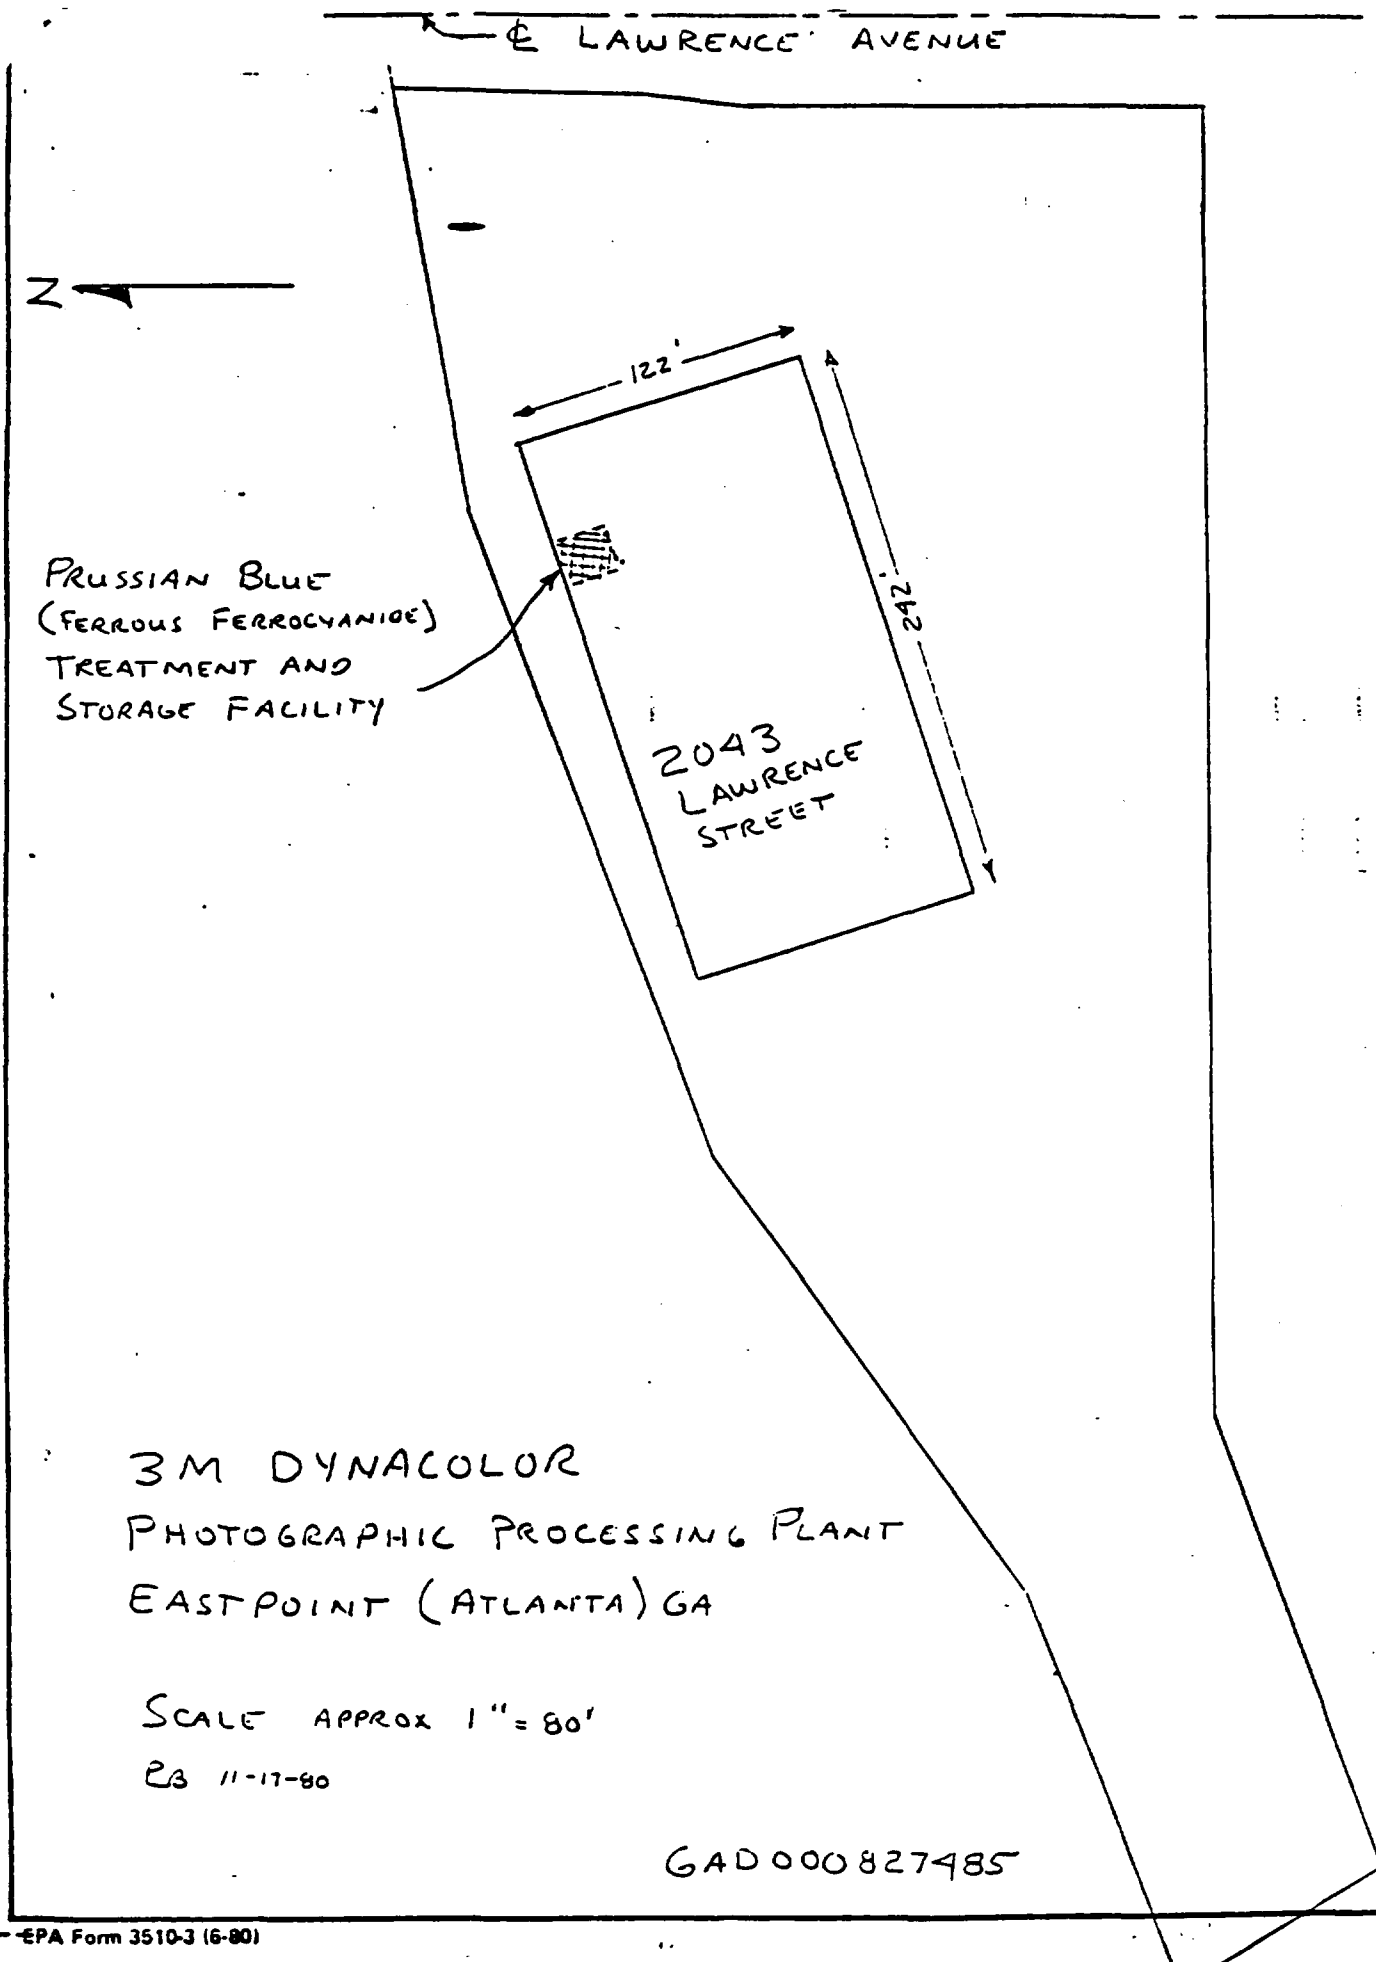 ℄ LAWRENCE AVENUE
N
122'
242'
PRUSSIAN BLUE
(FERROUS FERROCYANIDE)
TREATMENT AND
STORAGE FACILITY
2043
LAWRENCE
STREET
3M DYNACOLOR
PHOTOGRAPHIC PROCESSING PLANT
EASTPOINT (ATLANTA) GA
SCALE APPROX 1" = 80'
11-17-80
GAD000827485
EPA Form 3510-3 (6-80)